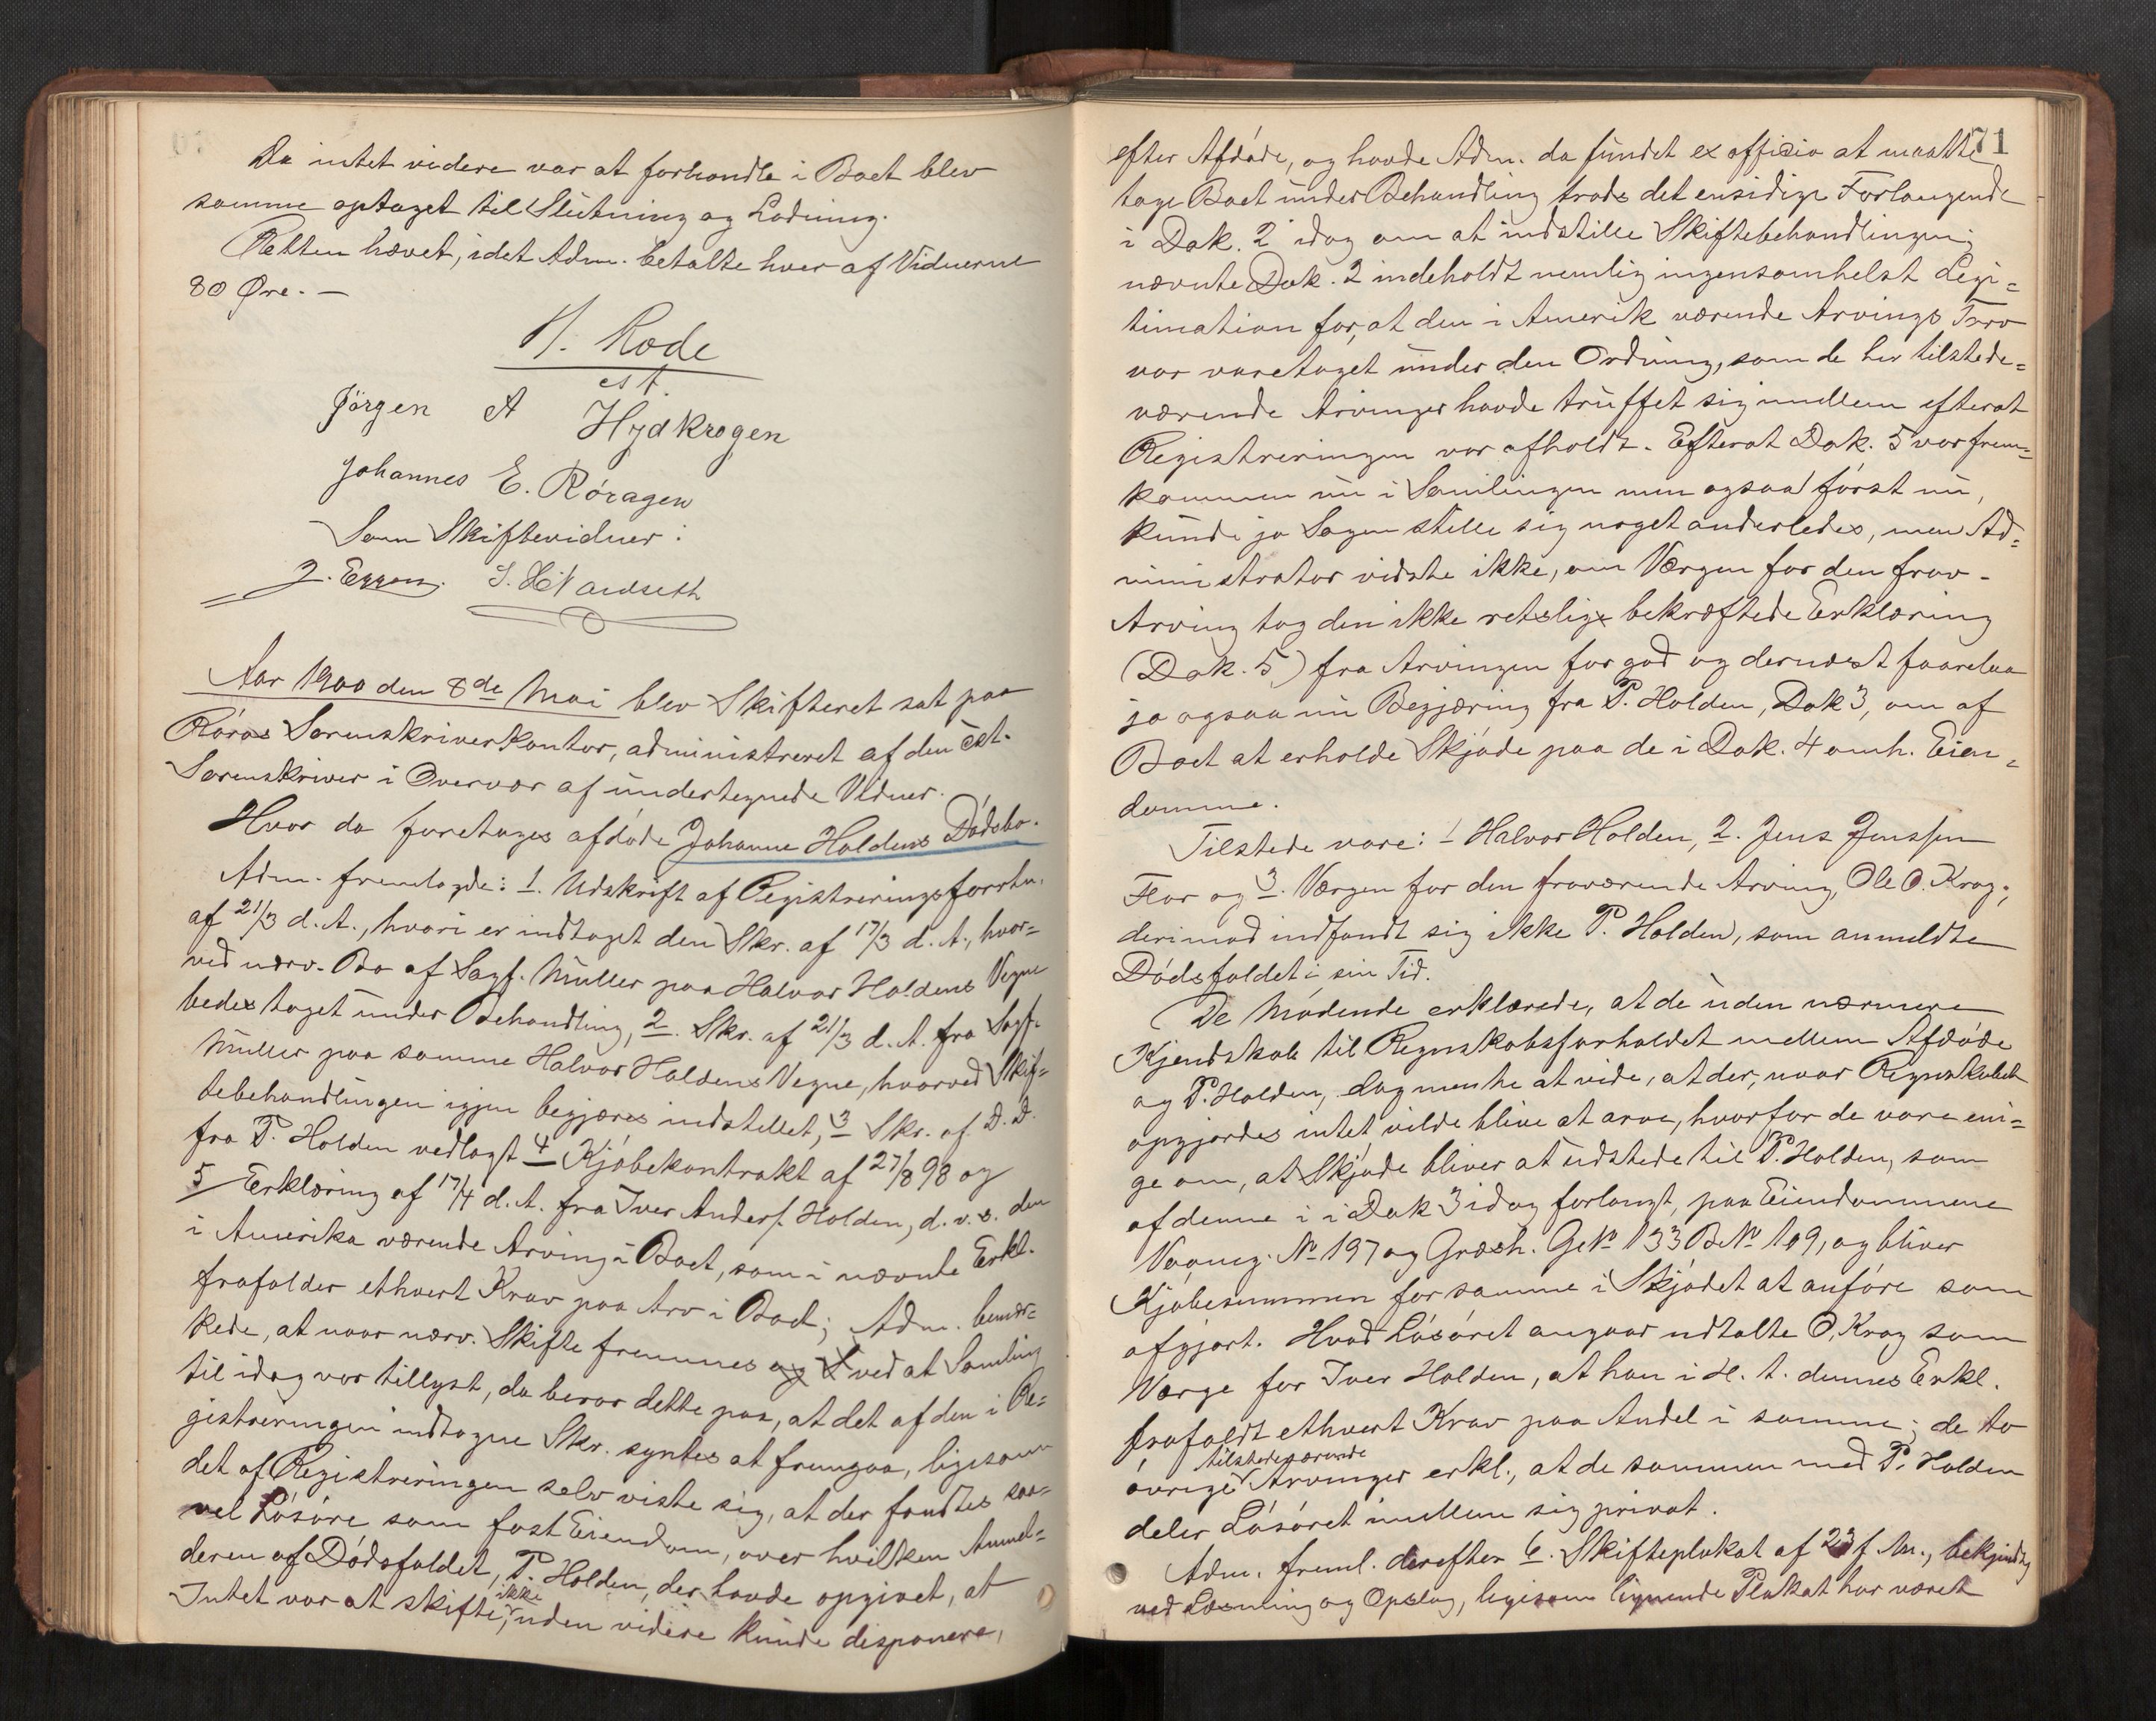 Da intet videre var at forhandle i Boet blev
samme optaget til Slutning og Lodning.
Retten hævet, idet Adm. betalte hver af Vidnerne
80 Øre. —
H. Rode
cst.
Jörgen A Hydkrogen
Johannes E. Röragen
Som Skiftevidner:
J. Eggen. S. H. Nardseth
Aar 1900 den 8de Mai blev Skifteret sat paa
Röros Sorenskriverkontor, administreret af den cst.
Sorenskriver i Overvær af undertegnede Vidner.
Hvor da foretages afdöde Johanne Holdens Dödsbo.
Adm. fremlagde: 1. Udskrift af Registreringsforretn.
af 21/3 d. A., hvori er indtaget den Skr. af 17/3 d. A., hvor=
ved nærv. Bo af Sagf. Müller paa Halvor Holdens Vegne
bedes taget under Behandling, 2. Skr. af 21/3 d. A. fra Sagf.
Müller paa samme Halvor Holdens Vegne, hvorved Skif=
tebehandlingen igjen begjæres indstillet, 3 Skr. af D. D.
fra P. Holden vedlagt 4 Kjöbekontrakt af 27/8 98 og
5 Erklæring af 17/4 d. A. fra Iver Anders. Holden, d. v. s. den
i Amerika værende Arving i Boet, som i nævnte Erkl.
frafalder ethvert Krav paa Arv i Boet; Adm. bemær=
kede, at naar nærv. Skifte fremmes og S ved at Samling
til idag var tillyst, da beror dette paa, at det af den i Re=
gistreringen indtagne Skr. syntes at fremgaa, ligesom
det af Registreringen selv viste sig, at der fandtes saa=
vel Lösöre som fast Eiendom, over hvilken Anmel=
deren af Dödsfaldet, P. Holden, der havde opgivet, at
Intet var at skifte, ikke uden videre kunde disponere,
71
efter Afdöde, og havde Adm. da fundet ex officio at maatte
tage Boet under Behandling trods det ensidige Forlangende
i Dok. 2 idag om at indstille Skiftebehandlingen;
nævnte Dok. 2 indeholdt nemlig ingensomhelst Legi=
timation for, at den i Amerik værende Arvings Tarv
var varetaget under den Ordning, som de her tilstede=
værende Arvinger havde truffet sig imellem efterat
Registreringen var afholdt. Efterat Dok. 5 var frem=
kommen nu i Samlingen men ogsaa först nu,
kunde jo Sagen stille sig noget anderledes, men Ad=
ministrator vidste ikke, om Værgen for den frav.
Arving tog den ikke retslige bekræftede Erklæring
(Dok. 5) fra Arvingen for god og dernæst foorelaa
jo ogsaa nu Begjæring fra P. Holden, Dok 3, om af
Boet at erholde Skjöde paa de i Dok. 4 omh. Eien=
domme.
Tilstede vare: 1 Halvor Holden, 2. Jens Jenssen
Flor og 3. Værgen for den fraværende Arving, Ole O. Krog;
derimod indfandt sig ikke P. Holden, som anmeldte
Dödsfaldet i sin Tid.
De Mödende erklærede, at de uden nærmere
Kjendskab til Regnskabsforholdet mellem Afdöde
og P. Holden, dog mente at vide, at der, naar Regnskabet
opgjordes intet vilde blive at arve, hvorfor de vare eni=
ge om, at Skjöde bliver at udstede til P. Holden, som
af denne i i Dok 3 idag forlangt, paa Eiendommene
Vaaneg. No 197 og Græsh. G No 133 B No 109, og bliver
Kjöbesummen for samme i Skjödet at anföre som
afgjort. Hvad Lösöret angaar udtalte O. Krog som
Værge for Iver Holden, at han i H. t. dennes Erkl.
frafaldt ethvert Krav paa Andel i samme; de to
övrige tilstedeværende Arvinger erkl., at de sammen med P. Holden
deler Lösöret imellem sig privat.
Adm. freml. derefter 6. Skifteplakat af 23 f. M., bekjendtg
ved Læsning og Opslag, ligesom lignende Plakat har været